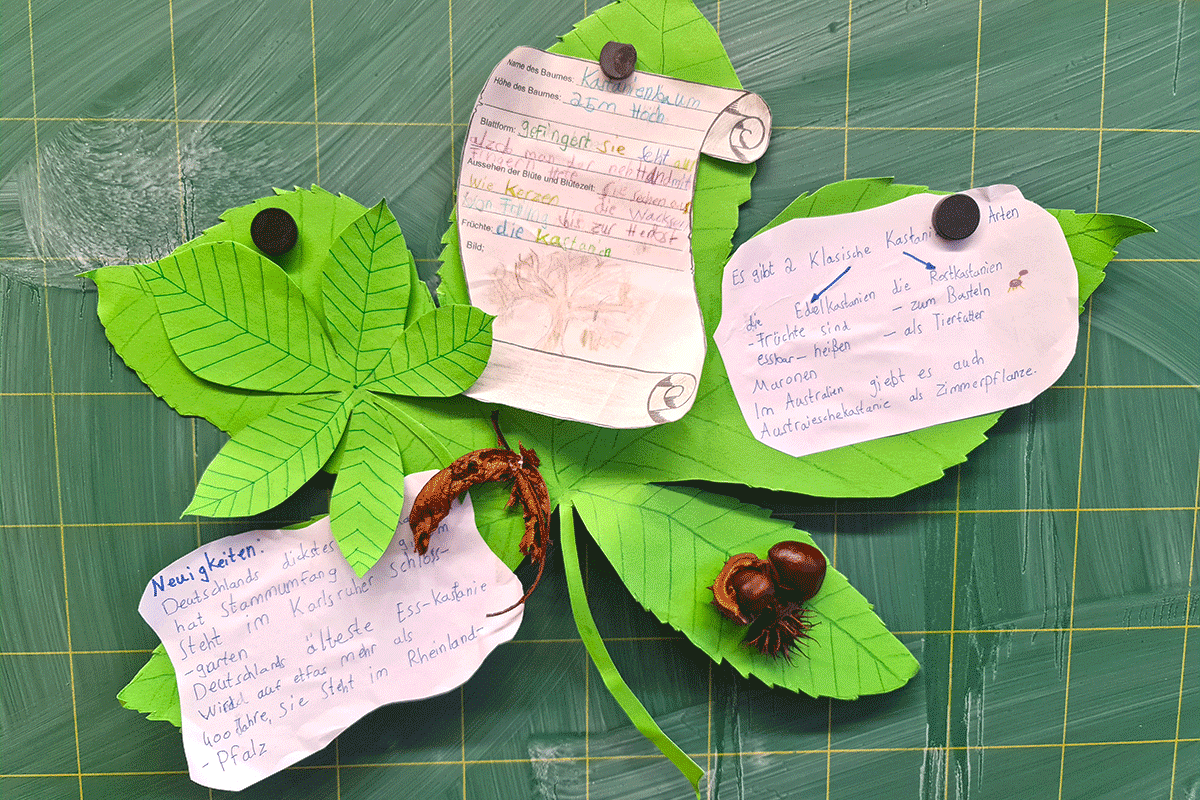 Name des Baumes: Kastanienbaum
Höhe des Baumes: 2Em Höch
Blattform: gefingert sie seht aus
alzob man der neh Handmit
Fingern Hete
Aussehen der Blüte und Blütezeit: Sie sechen aus
wie Kerzen die Wacksen
Von Früling bis zur Herbst
Früchte: die Kastanien
Bild:
Es gibt 2 Klasische Kastani Arten
die Edelkastanien die Rostkastanien
-Früchte sind - zum Basteln
essbar- heißen - als Tierfutter
Maronen
Im Australien giebt es auch
Austraieschekastanie als Zimmerpflanze.
Neuigkeiten:
Deutschlands dickstes
hat Stammumfang
Steht im Karlsruher Schloss-
-garten
Deutschlands älteste Ess-kastanie
wird auf etfas mehr als
400 Jahre, sie steht im Rheinland-
-Pfalz